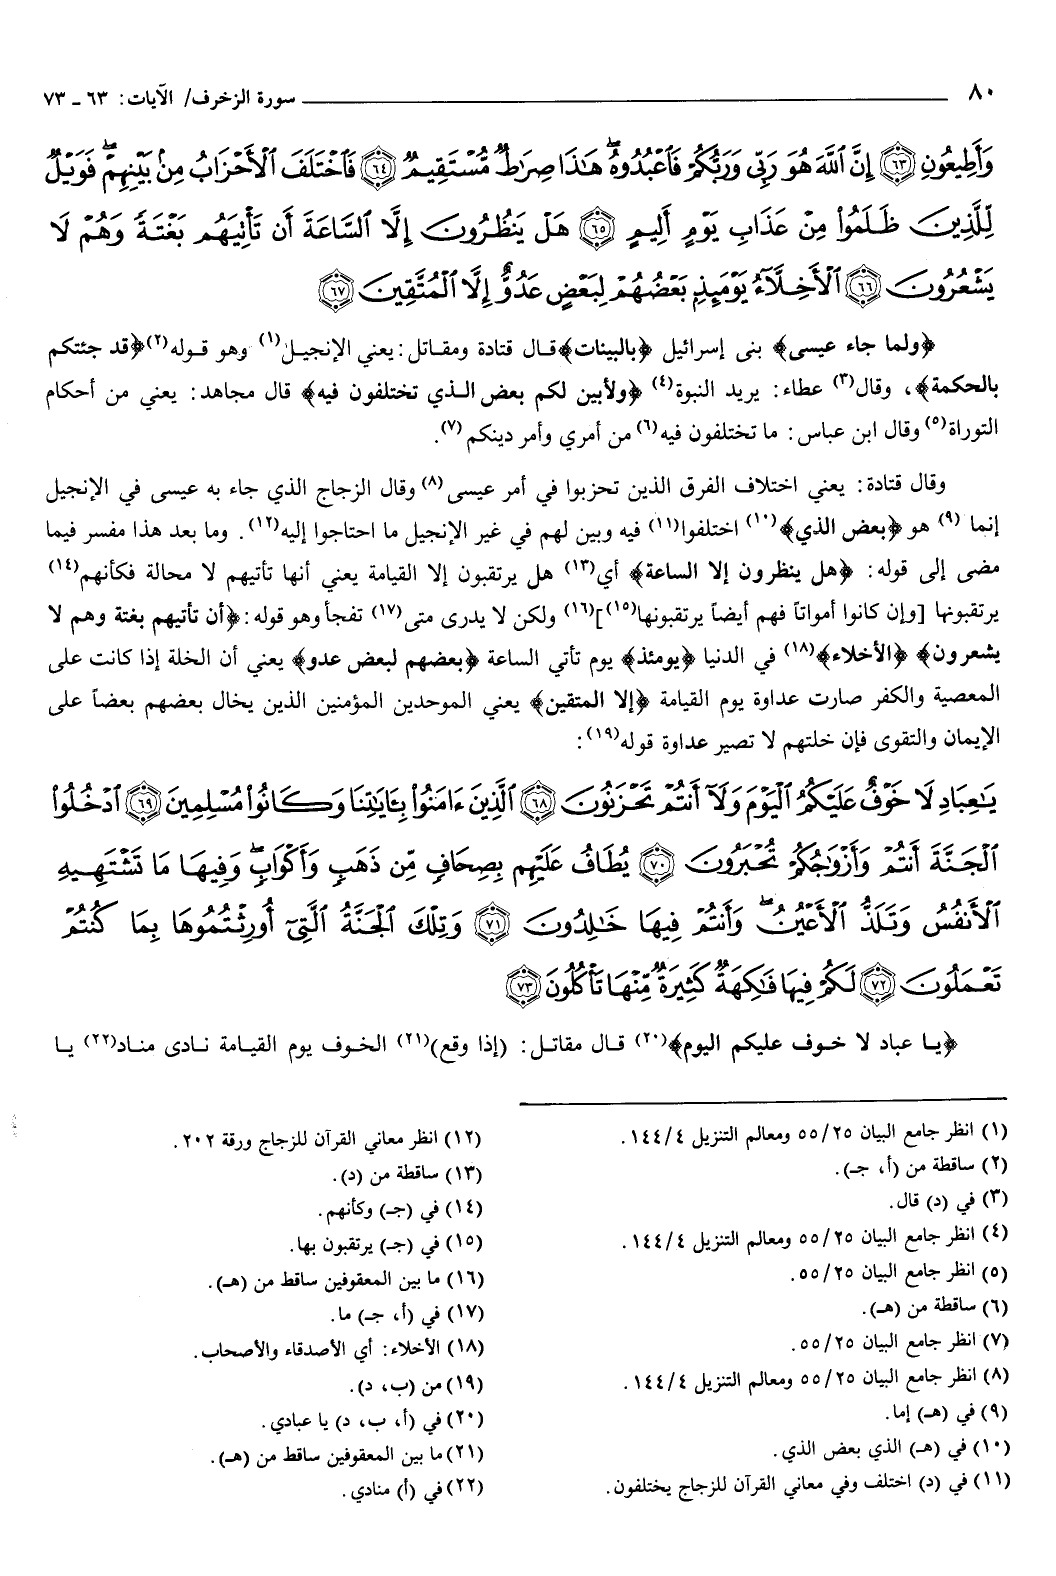 ٨٠ سورة الزخرف/ الآيات: ٦٣ ـ ٧٣
وَأَطِيعُونِ ﴿٦٣﴾ إِنَّ ٱللَّهَ هُوَ رَبِّى وَرَبُّكُمْ فَٱعْبُدُوهُ ۚ هَٰذَا صِرَٰطٌ مُّسْتَقِيمٌ ﴿٦٤﴾ فَٱخْتَلَفَ ٱلْأَحْزَابُ مِنۢ بَيْنِهِمْ ۖ فَوَيْلٌ
لِّلَّذِينَ ظَلَمُوا۟ مِنْ عَذَابِ يَوْمٍ أَلِيمٍ ﴿٦٥﴾ هَلْ يَنظُرُونَ إِلَّا ٱلسَّاعَةَ أَن تَأْتِيَهُم بَغْتَةً وَهُمْ لَا
يَشْعُرُونَ ﴿٦٦﴾ ٱلْأَخِلَّآءُ يَوْمَئِذٍۭ بَعْضُهُمْ لِبَعْضٍ عَدُوٌّ إِلَّا ٱلْمُتَّقِينَ ﴿٦٧﴾
﴿ولما جاء عيسى﴾ بنى إسرائيل ﴿بالبينات﴾ قال قتادة ومقاتل: يعني الإنجيل(١) وهو قوله(٢) ﴿قد جئتكم
بالحكمة﴾، وقال(٣) عطاء: يريد النبوة(٤) ﴿ولأبين لكم بعض الذي تختلفون فيه﴾ قال مجاهد: يعني من أحكام
التوراة(٥) وقال ابن عباس: ما تختلفون فيه(٦) من أمري وأمر دينكم(٧).
وقال قتادة: يعني اختلاف الفرق الذين تحزبوا في أمر عيسى(٨) وقال الزجاج الذي جاء به عيسى في الإنجيل
إنما(٩) هو ﴿بعض الذي﴾(١٠) اختلفوا(١١) فيه وبين لهم في غير الإنجيل ما احتاجوا إليه(١٢). وما بعد هذا مفسر فيما
مضى إلى قوله: ﴿هل ينظرون إلا الساعة﴾ أي(١٣) هل يرتقبون إلا القيامة يعني أنها تأتيهم لا محالة فكأنهم(١٤)
يرتقبونها [وإن كانوا أمواتاً فهم أيضاً يرتقبونها(١٥)](١٦) ولكن لا يدرى متى(١٧) تفجأ وهو قوله: ﴿أن تأتيهم بغتة وهم لا
يشعرون﴾ ﴿الأخلاء﴾(١٨) في الدنيا ﴿يومئذ﴾ يوم تأتي الساعة ﴿بعضهم لبعض عدو﴾ يعني أن الخلة إذا كانت على
المعصية والكفر صارت عداوة يوم القيامة ﴿إلا المتقين﴾ يعني الموحدين المؤمنين الذين يخال بعضهم بعضاً على
الإيمان والتقوى فإن خلتهم لا تصير عداوة قوله(١٩):
يَٰعِبَادِ لَا خَوْفٌ عَلَيْكُمُ ٱلْيَوْمَ وَلَآ أَنتُمْ تَحْزَنُونَ ﴿٦٨﴾ ٱلَّذِينَ ءَامَنُوا۟ بِـَٔايَٰتِنَا وَكَانُوا۟ مُسْلِمِينَ ﴿٦٩﴾ ٱدْخُلُوا۟
ٱلْجَنَّةَ أَنتُمْ وَأَزْوَٰجُكُمْ تُحْبَرُونَ ﴿٧٠﴾ يُطَافُ عَلَيْهِم بِصِحَافٍ مِّن ذَهَبٍ وَأَكْوَابٍ ۖ وَفِيهَا مَا تَشْتَهِيهِ
ٱلْأَنفُسُ وَتَلَذُّ ٱلْأَعْيُنُ ۖ وَأَنتُمْ فِيهَا خَٰلِدُونَ ﴿٧١﴾ وَتِلْكَ ٱلْجَنَّةُ ٱلَّتِىٓ أُورِثْتُمُوهَا بِمَا كُنتُمْ
تَعْمَلُونَ ﴿٧٢﴾ لَكُمْ فِيهَا فَٰكِهَةٌ كَثِيرَةٌ مِّنْهَا تَأْكُلُونَ ﴿٧٣﴾
﴿يا عباد لا خوف عليكم اليوم﴾(٢٠) قال مقاتل: (إذا وقع)(٢١) الخوف يوم القيامة نادى مناد(٢٢) يا
(١) انظر جامع البيان ٥٥/٢٥ ومعالم التنزيل ١٤٤/٤.
(٢) ساقطة من (أ، جـ).
(٣) في (د) قال.
(٤) انظر جامع البيان ٥٥/٢٥ ومعالم التنزيل ١٤٤/٤.
(٥) انظر جامع البيان ٥٥/٢٥.
(٦) ساقطة من (هـ).
(٧) انظر جامع البيان ٥٥/٢٥.
(٨) انظر جامع البيان ٥٥/٢٥ ومعالم التنزيل ١٤٤/٤.
(٩) في (هـ) إما.
(١٠) في (هـ) الذي بعض الذي.
(١١) في (د) اختلف وفي معاني القرآن للزجاج يختلفون.
(١٢) انظر معاني القرآن للزجاج ورقة ٢٠٢.
(١٣) ساقطة من (د).
(١٤) في (جـ) وكأنهم.
(١٥) في (جـ) يرتقبون بها.
(١٦) ما بين المعقوفين ساقط من (هـ).
(١٧) في (أ، جـ) ما.
(١٨) الأخلاء: أي الأصدقاء والأصحاب.
(١٩) من (ب، د).
(٢٠) في (أ، ب، د) يا عبادي.
(٢١) ما بين المعقوفين ساقط من (هـ).
(٢٢) في (أ) منادي.